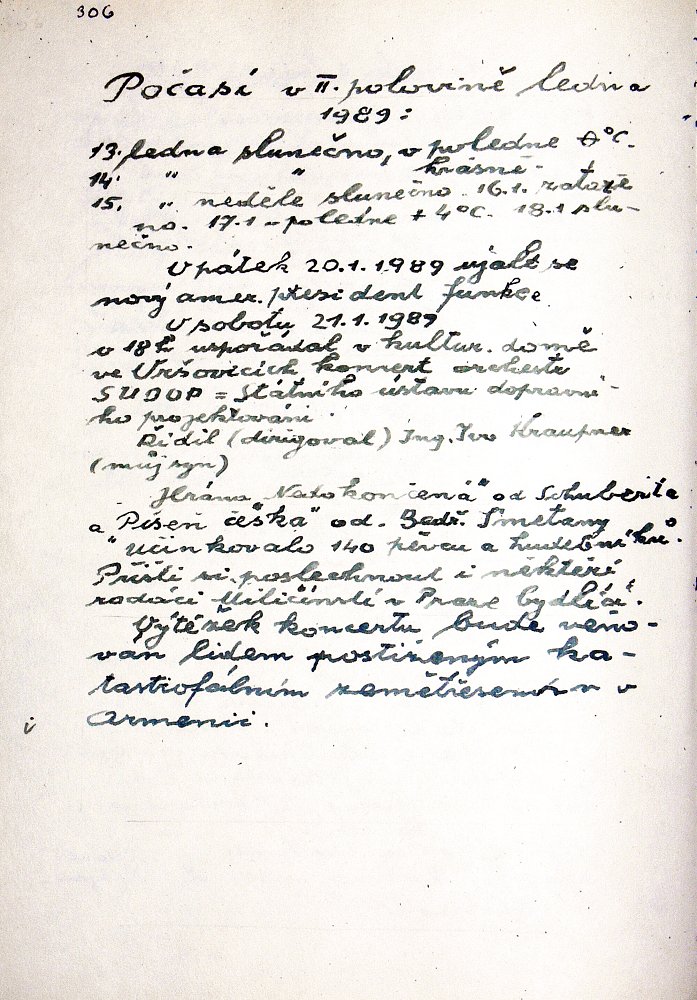 306
Počasí v II. polovině ledna
1989:
13. ledna slunečno, v poledne °C.
14. " " krásně.
15. " neděle slunečno. 16.1. zataže
no. 17.1 - poledne + 4°C. 18.1 slu-
nečno.
V pátek 20.1.1989 ujal se
nový amer. president funkce
V sobotu 21.1.1989
v 18h uspořádal v kultur. domě
ve Vršovicích koncert orchestr
SUDOP = Státního ústavu dopravní-
ho projektování.
Řídil (dirigoval) Ing. Ivo Kraupner
(můj syn)
Hrána "Nedokončená" od Schuberta
a "Píseň česká" od. Bedř. Smetany
" Učinkovalo 140 pěvců a hudebníků.
Přišli si poslechnout i někteří
rodáci Miličínští v Praze bydlící.
Výtěžek koncertu bude věno-
ván lidem postiženým ka-
tastrofálním zemětřesením v
Armenii.